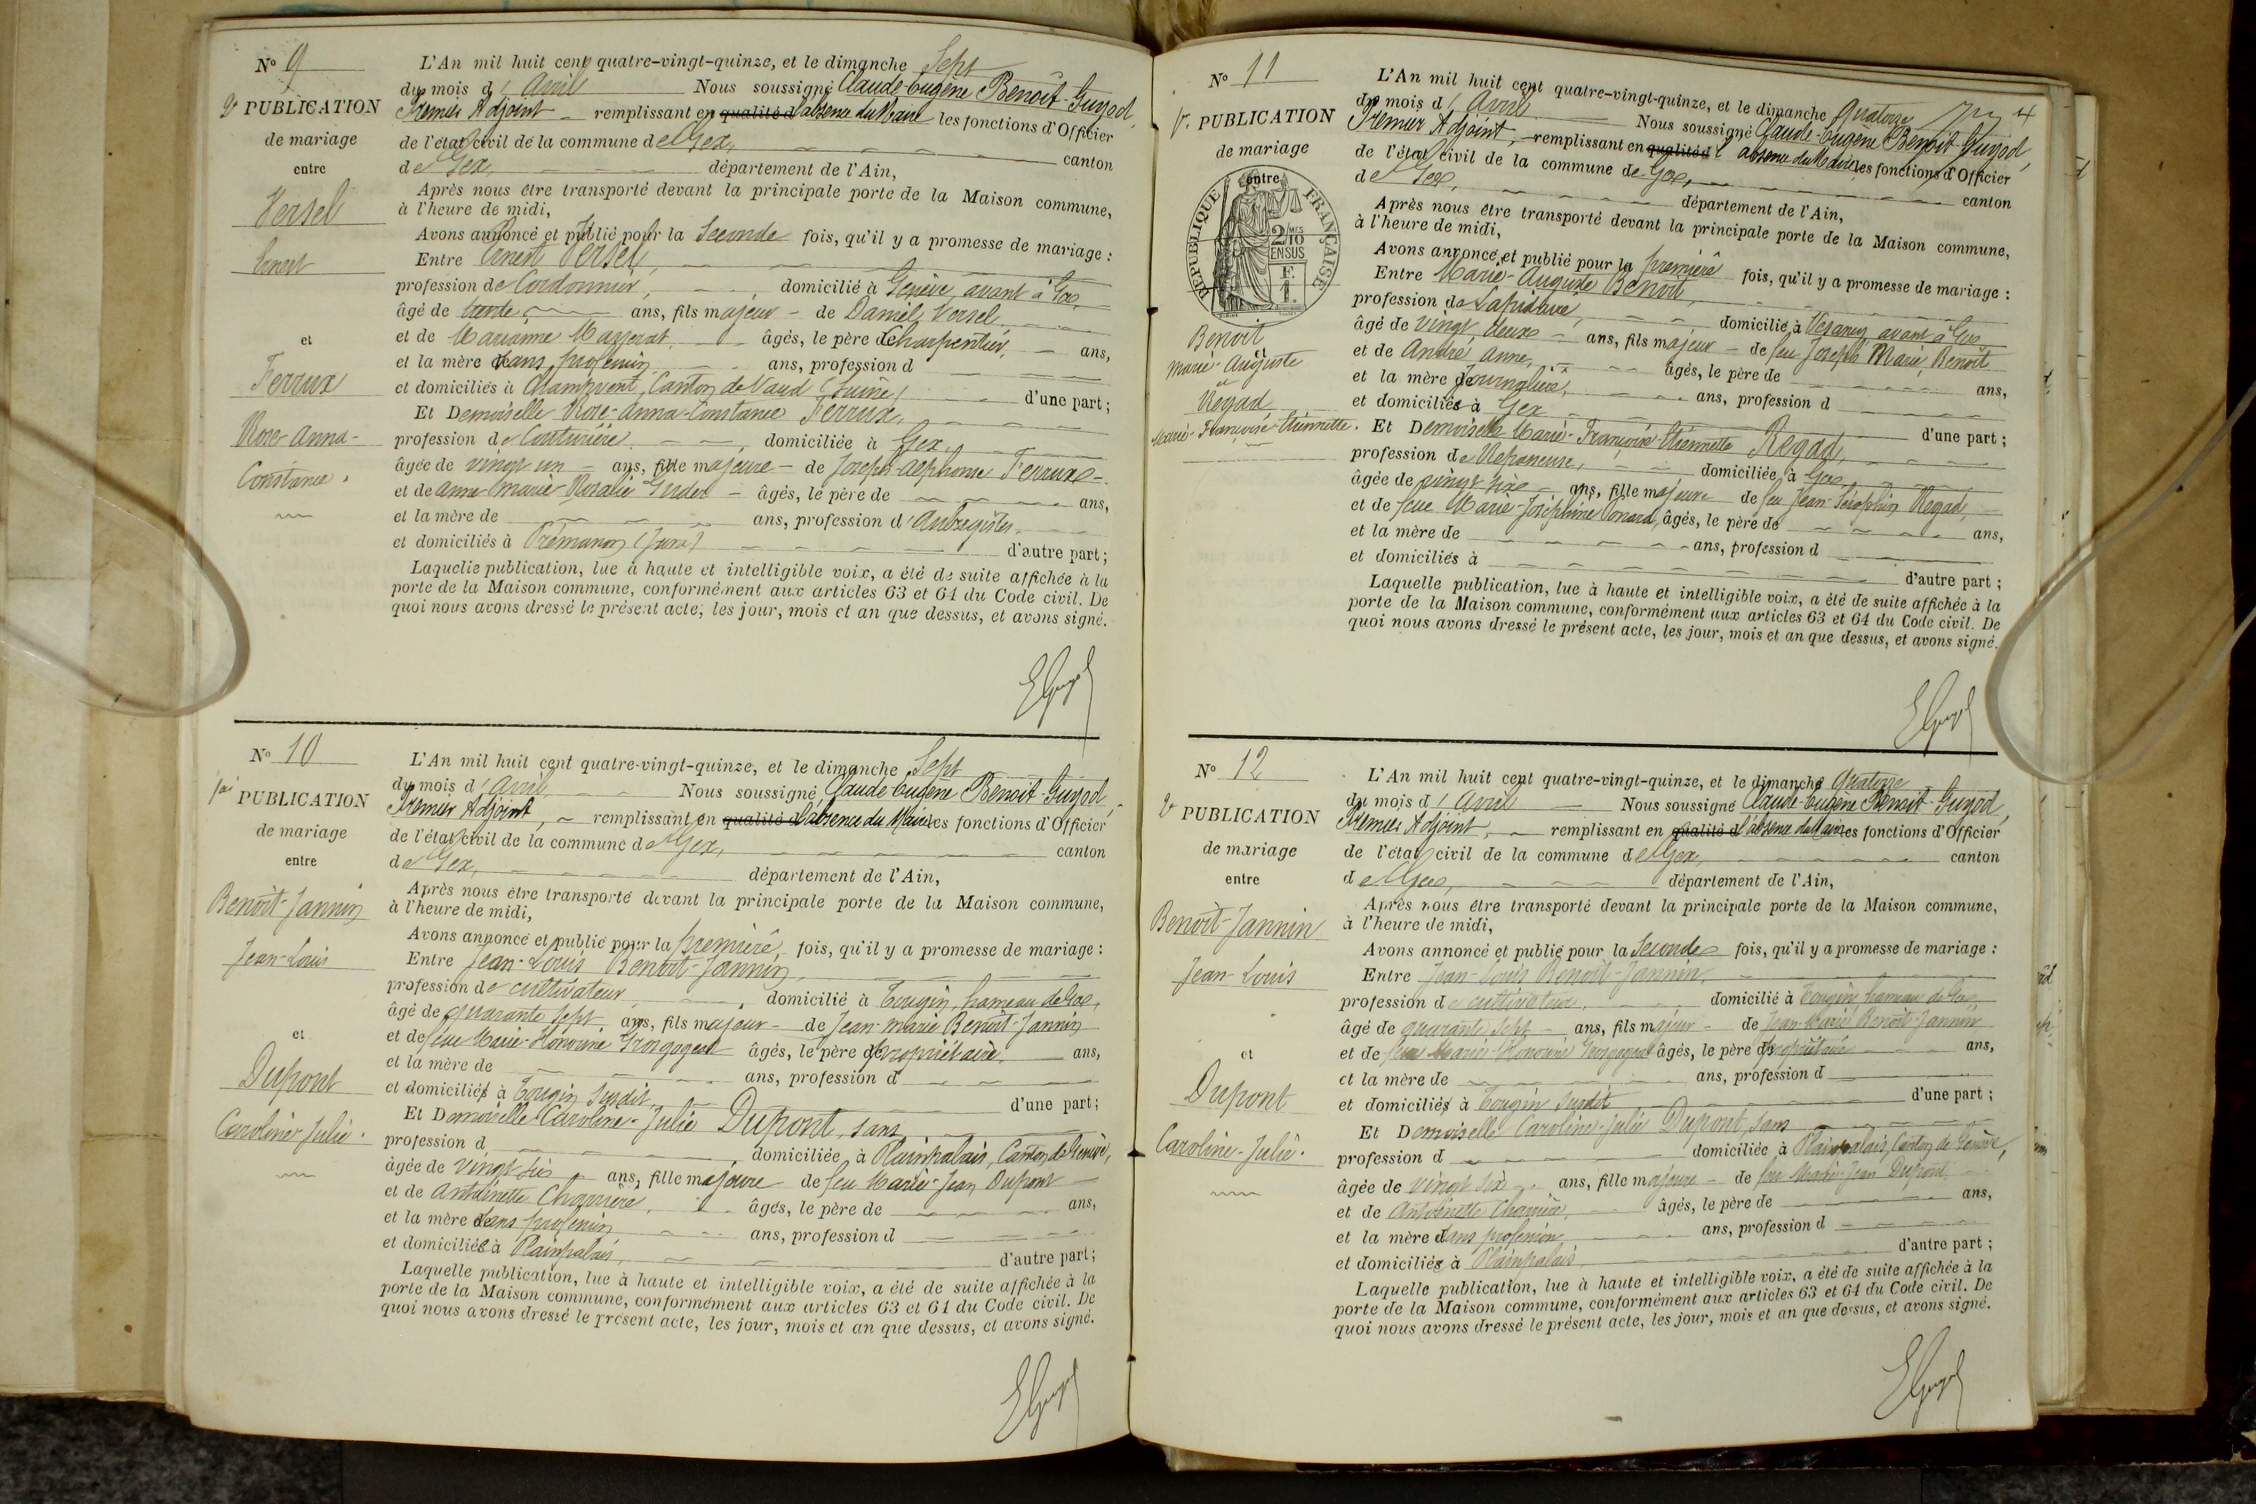 N° 9
2e PUBLICATION
de mariage
entre
Versel
Ernest
et
Ferrux
Rose-Anna-
Constance.
L'An mil huit cent quatre-vingt-quinze, et le dimanche Sept
du mois d'Avril Nous soussigné Claude-Eugène Benoît-Guyod,
Premier Adjoint remplissant en qualité d l'absence du Maire les fonctions d'Officier
de l'état civil de la commune de Gex, canton
de Gex, département de l'Ain,
Après nous être transporté devant la principale porte de la Maison commune,
à l'heure de midi,
Avons annoncé et publié pour la Seconde fois, qu'il y a promesse de mariage :
Entre Ernest Versel,
profession de Cordonnier, domicilié à Genève, avant à Gex,
âgé de trente ans, fils majeur de Daniel Versel
et de Marianne âgés, le père de charpentier, ans,
et la mère d sans profession ans, profession d
et domiciliés à Champvent, Canton de Vaud (Suisse) d'une part ;
Et Demoiselle Rose-Anna-Constance Ferrux,
profession de Couturière, domiciliée à Gex,
âgée de vingt un ans, fille majeure de Joseph-Alphonse Ferrux
et de Anne-Marie Rosalie âgés, le père de ans,
et la mère de ans, profession d'Aubergistes
et domiciliés à Prémanon (Jura) d'autre part ;
Laquelle publication, lue à haute et intelligible voix, a été de suite affichée à la
porte de la Maison commune, conformément aux articles 63 et 64 du Code civil. De
quoi nous avons dressé le présent acte, les jour, mois et an que dessus, et avons signé.
EGuyod
N° 10
1re PUBLICATION
de mariage
entre
Benoît-Jannin
Jean-Louis
et
Dupont
Caroline-Julie.
L'An mil huit cent quatre-vingt-quinze, et le dimanche Sept
du mois d'Avril Nous soussigné Claude-Eugène Benoît-Guyod,
Premier Adjoint, remplissant en qualité d l'absence du Maire les fonctions d'Officier
de l'état civil de la commune de Gex, canton
de Gex, département de l'Ain,
Après nous être transporté devant la principale porte de la Maison commune,
à l'heure de midi,
Avons annoncé et publié pour la première fois, qu'il y a promesse de mariage :
Entre Jean-Louis Benoît-Jannin,
profession de cultivateur, domicilié à Tougin, hameau de Gex,
âgé de quarante sept ans, fils majeur de Jean-Marie Benoît-Jannin
et de feue Marie-Honorine Grosgogeat âgés, le père de propriétaire, ans,
et la mère de ans, profession d
et domiciliés à Tougin susdit, d'une part ;
Et Demoiselle Caroline-Julie Dupont, sans
profession d domiciliée à Plainpalais, Canton de Genève,
âgée de vingt six ans, fille majeure de feu Marie-Jean Dupont
et de Antoinette Charrière, âgés, le père de ans,
et la mère d sans profession ans, profession d
et domiciliés à Plainpalais, d'autre part ;
Laquelle publication, lue à haute et intelligible voix, a été de suite affichée à la
porte de la Maison commune, conformément aux articles 63 et 64 du Code civil. De
quoi nous avons dressé le présent acte, les jour, mois et an que dessus, et avons signé.
EGuyod
4
N° 11
1re PUBLICATION
de mariage
entre
RÉPUBLIQUE FRANÇAISE
2/10 MES
EN SUS
F.
1.
Benoit
Marie-Auguste
et
Regad
Marie-Françoise-Etiennette.
L'An mil huit cent quatre-vingt-quinze, et le dimanche Quatorze
du mois d'Avril Nous soussigné Claude-Eugène Benoît-Guyod,
Premier Adjoint, remplissant en qualité d l'absence du Maire les fonctions d'Officier
de l'état civil de la commune de Gex, canton
de Gex, département de l'Ain,
Après nous être transporté devant la principale porte de la Maison commune,
à l'heure de midi,
Avons annoncé et publié pour la première fois, qu'il y a promesse de mariage :
Entre Marie-Auguste Benoit,
profession de Lapidaire, domicilié à Vesancy avant à Gex
âgé de vingt deux ans, fils majeur de feu Joseph Marie Benoit
et de André Anne, âgés, le père de ans,
et la mère de Journalière, ans, profession d
et domiciliés à Gex d'une part ;
Et Demoiselle Marie-Françoise-Etiennette Regad,
profession de Repasseuse, domiciliée à Gex
âgée de vingt six ans, fille majeure de feu Jean-Séraphin Regad,
et de feue Marie-Joséphine âgés, le père de ans,
et la mère de ans, profession d
et domiciliés à d'autre part ;
Laquelle publication, lue à haute et intelligible voix, a été de suite affichée à la
porte de la Maison commune, conformément aux articles 63 et 64 du Code civil. De
quoi nous avons dressé le présent acte, les jour, mois et an que dessus, et avons signé.
EGuyod
N° 12
2e PUBLICATION
de mariage
entre
Benoît-Jannin
Jean-Louis
et
Dupont
Caroline-Julie.
L'An mil huit cent quatre-vingt-quinze, et le dimanche Quatorze
du mois d'Avril Nous soussigné Claude-Eugène Benoît-Guyod,
Premier Adjoint, remplissant en qualité d l'absence du Maire les fonctions d'Officier
de l'état civil de la commune de Gex, canton
de Gex, département de l'Ain,
Après nous être transporté devant la principale porte de la Maison commune,
à l'heure de midi,
Avons annoncé et publié pour la Seconde fois, qu'il y a promesse de mariage :
Entre Jean-Louis Benoît-Jannin,
profession de cultivateur, domicilié à Tougin hameau de Gex,
âgé de quarante sept ans, fils majeur de Jean-Marie Benoît-Jannin
et de feue Marie-Honorine Grosgogeat âgés, le père de propriétaire ans,
et la mère de ans, profession d
et domiciliés à Tougin susdit d'une part ;
Et Demoiselle Caroline-Julie Dupont, sans
profession d domiciliée à Plainpalais, Canton de Genève,
âgée de vingt six ans, fille majeure de feu Marie-Jean Dupont,
et de Antoinette Charrière, âgés, le père de ans,
et la mère d sans profession, ans, profession d
et domiciliés à Plainpalais d'autre part ;
Laquelle publication, lue à haute et intelligible voix, a été de suite affichée à la
porte de la Maison commune, conformément aux articles 63 et 64 du Code civil. De
quoi nous avons dressé le présent acte, les jour, mois et an que dessus, et avons signé.
EGuyod